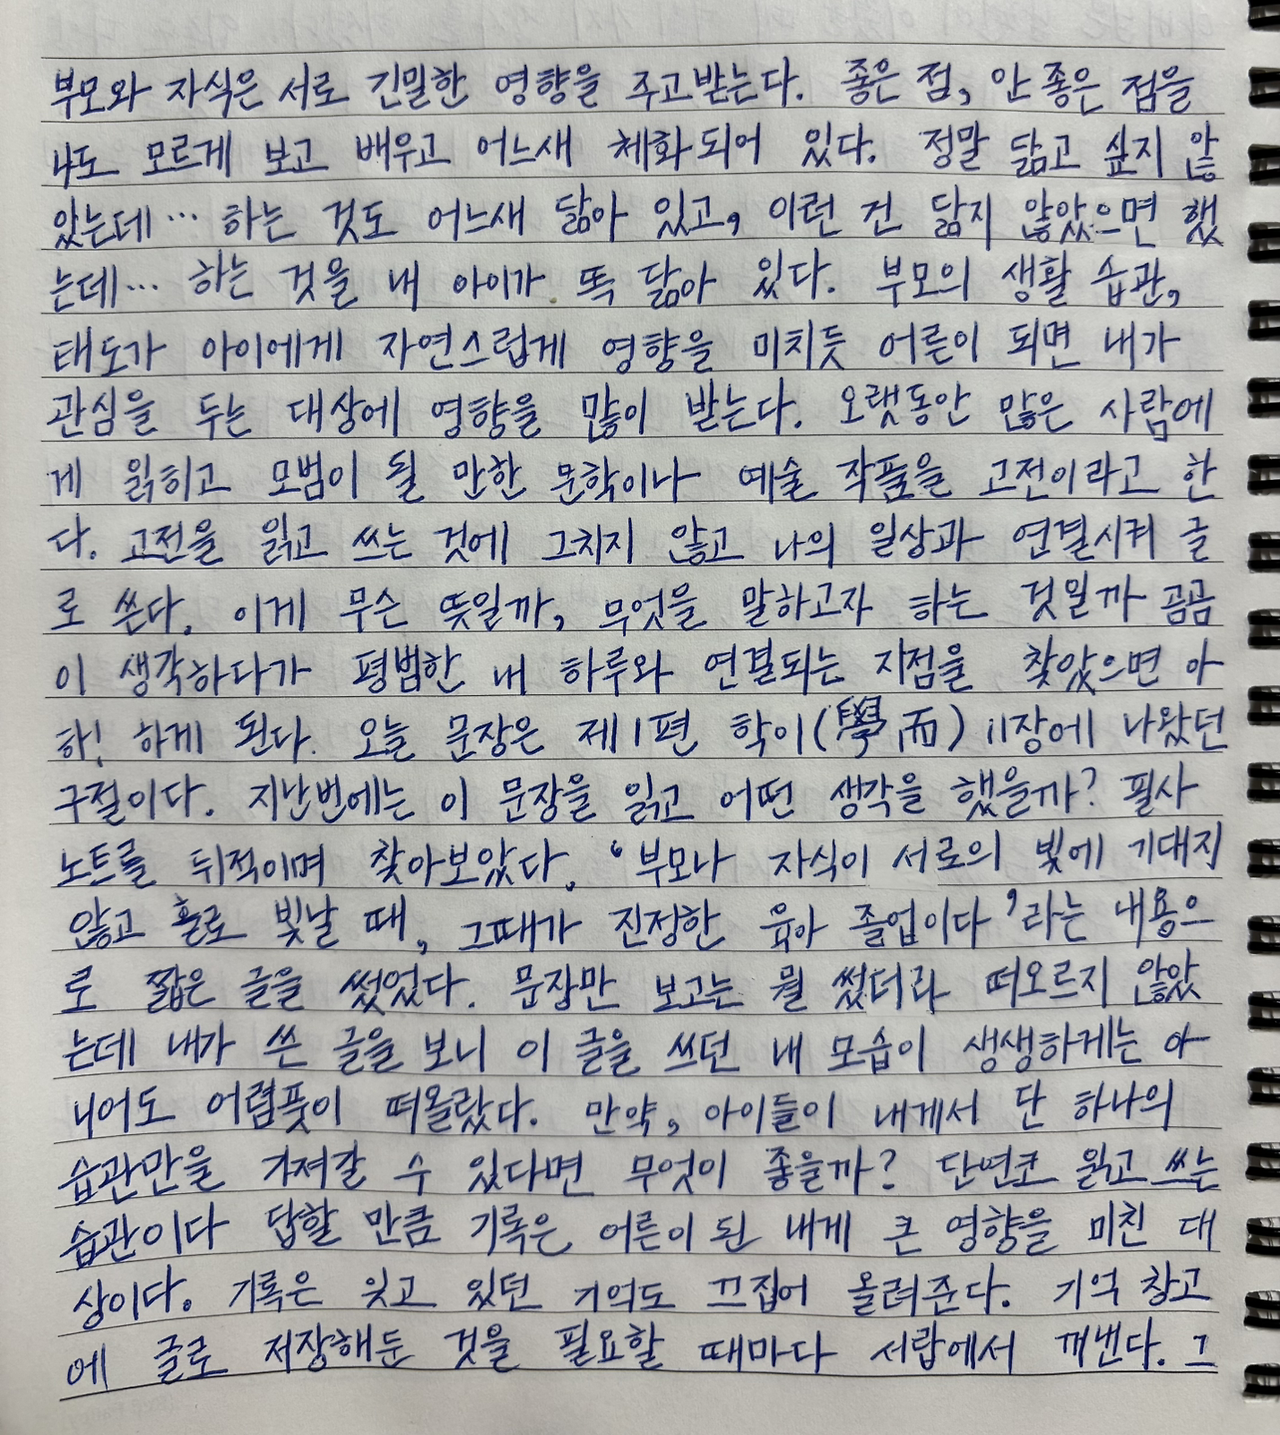 부모와 자식은 서로 긴밀한 영향을 주고받는다. 좋은 점, 안 좋은 점을
나도 모르게 보고 배우고 어느새 체화되어 있다. 정말 닮고 싶지 않
았는데… 하는 것도 어느새 닮아 있고, 이런 건 닮지 않았으면 했
는데… 하는 것을 내 아이가 똑 닮아 있다. 부모의 생활 습관,
태도가 아이에게 자연스럽게 영향을 미치듯 어른이 되면 내가
관심을 두는 대상에 영향을 많이 받는다. 오랫동안 많은 사람에
게 읽히고 모범이 될 만한 문학이나 예술 작품을 고전이라고 한
다. 고전을 읽고 쓰는 것에 그치지 않고 나의 일상과 연결시켜 글
로 쓴다. 이게 무슨 뜻일까, 무엇을 말하고자 하는 것일까 곰곰
이 생각하다가 평범한 내 하루와 연결되는 지점을 찾았으면 아
하! 하게 된다. 오늘 문장은 제1편 학이(學而) 11장에 나왔던
구절이다. 지난번에는 이 문장을 읽고 어떤 생각을 했을까? 필사
노트를 뒤적이며 찾아보았다. '부모나 자식이 서로의 빛에 기대지
않고 홀로 빛날 때, 그때가 진정한 육아 졸업이다'라는 내용으
로 짧은 글을 썼었다. 문장만 보고는 뭘 썼더라 떠오르지 않았
는데 내가 쓴 글을 보니 이 글을 쓰던 내 모습이 생생하게는 아
니어도 어렴풋이 떠올랐다. 만약, 아이들이 내게서 단 하나의
습관만을 가져갈 수 있다면 무엇이 좋을까? 단연코 읽고 쓰는
습관이다 답할 만큼 기록은 어른이 된 내게 큰 영향을 미친 대
상이다. 기록은 잊고 있던 기억도 끄집어 올려준다. 기억 창고
에 글로 저장해둔 것을 필요할 때마다 서랍에서 꺼낸다. 그